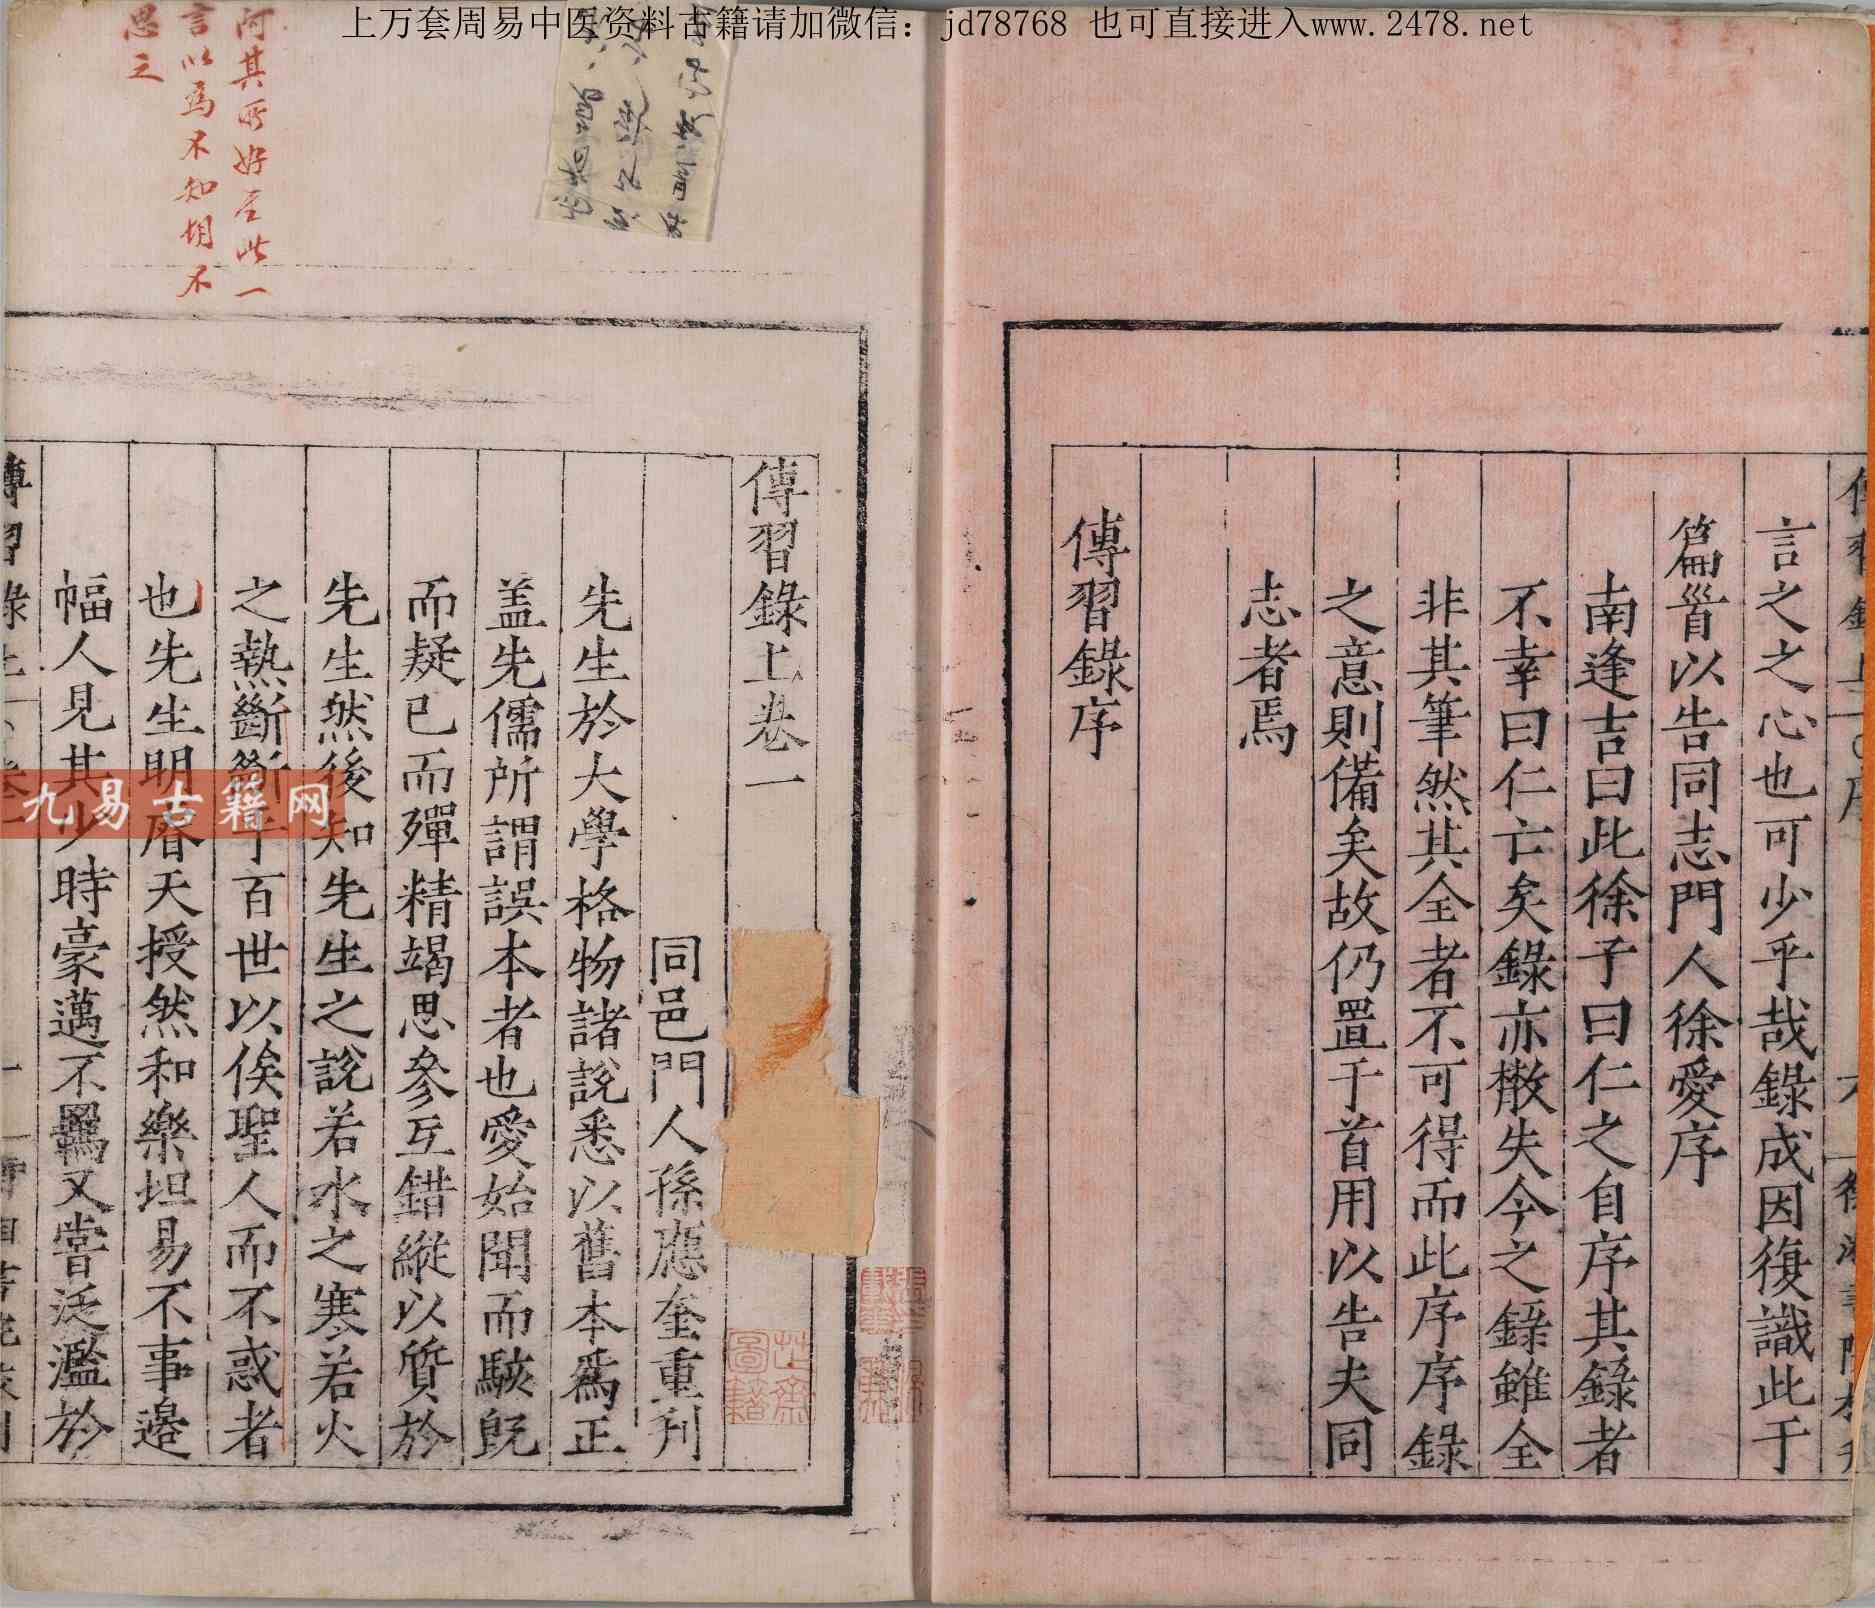 上万套周易中医资料古籍请加微信：jd78768 也可直接进入www.2478.net
言之之心也可少乎哉錄成因復識此于
篇首以告同志門人徐愛序
南逢吉曰此徐子曰仁之自序其錄者
不幸曰仁亡矣錄亦散失今之錄雖全
非其筆然其全者不可得而此序序錄
之意則備矣故仍置于首用以告夫同
志者焉
傳習錄序
傳習錄上卷一
同邑門人孫應奎重刋
先生於大學格物諸說悉以舊本爲正
盖先儒所謂誤本者也愛始聞而駭既
而疑已而殫精竭思參互錯縱以質於
先生然後知先生之說若水之寒若火
之熱斷斷乎百世以俟聖人而不惑者
也先生明睿天授然和樂坦易不事邊
幅人見其少時豪邁不羈又嘗泛濫於
傳習錄上
阿其所好至此一
言以爲不知胡不
思之
芷齋圖籍
九易古籍网